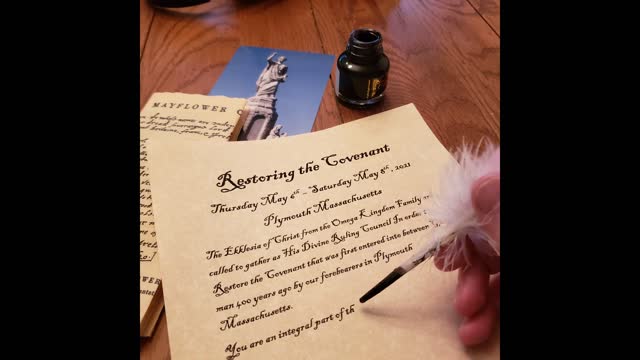 MAYFLOWER
Restoring the Covenant
Thursday May 6th – Saturday May 8th, 2021
Plymouth Massachusetts
The Ekklesia of Christ from the Omega Kingdom Family
called to gather as His Divine Ruling Council In order
Restore the Covenant that was first entered into between
man 400 years ago by our forebearers in Plymouth
Massachusetts.
You are an integral part of th